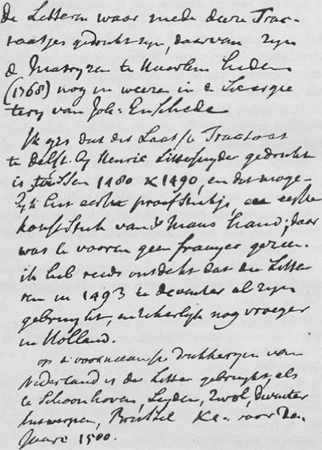 de Letteren waar mede deese Trac-
taatjes gedrukt zyn, daarvan zyn
de Matryzen te Haarlem heden
(1768) nog in weezen in de Lettergie-
tery van Joh: Enschede
Ik gis dat dit Laatste Tractaat
te Delft by Henric Lettersnyder gedrukt
is tusschen 1480 & 1490, en dit moge-
lyk eerste proefstukje, een eerste
van 's Mans hand; daar
was te vooren geen fraayer gezien.
ik heb reeds ontdekt dat die Letter
ren in 1493 te deventer al zyn
gebruykt, en zekerlyk nog vroeger
in Holland.
op d'voornaamste drukkeryen van
Nederland is de Letter gebruykt, als
te Schoonhoven, Leyden, Zwol, deventer
Antwerpen, Brussel &c. voor den
Jaare 1500.